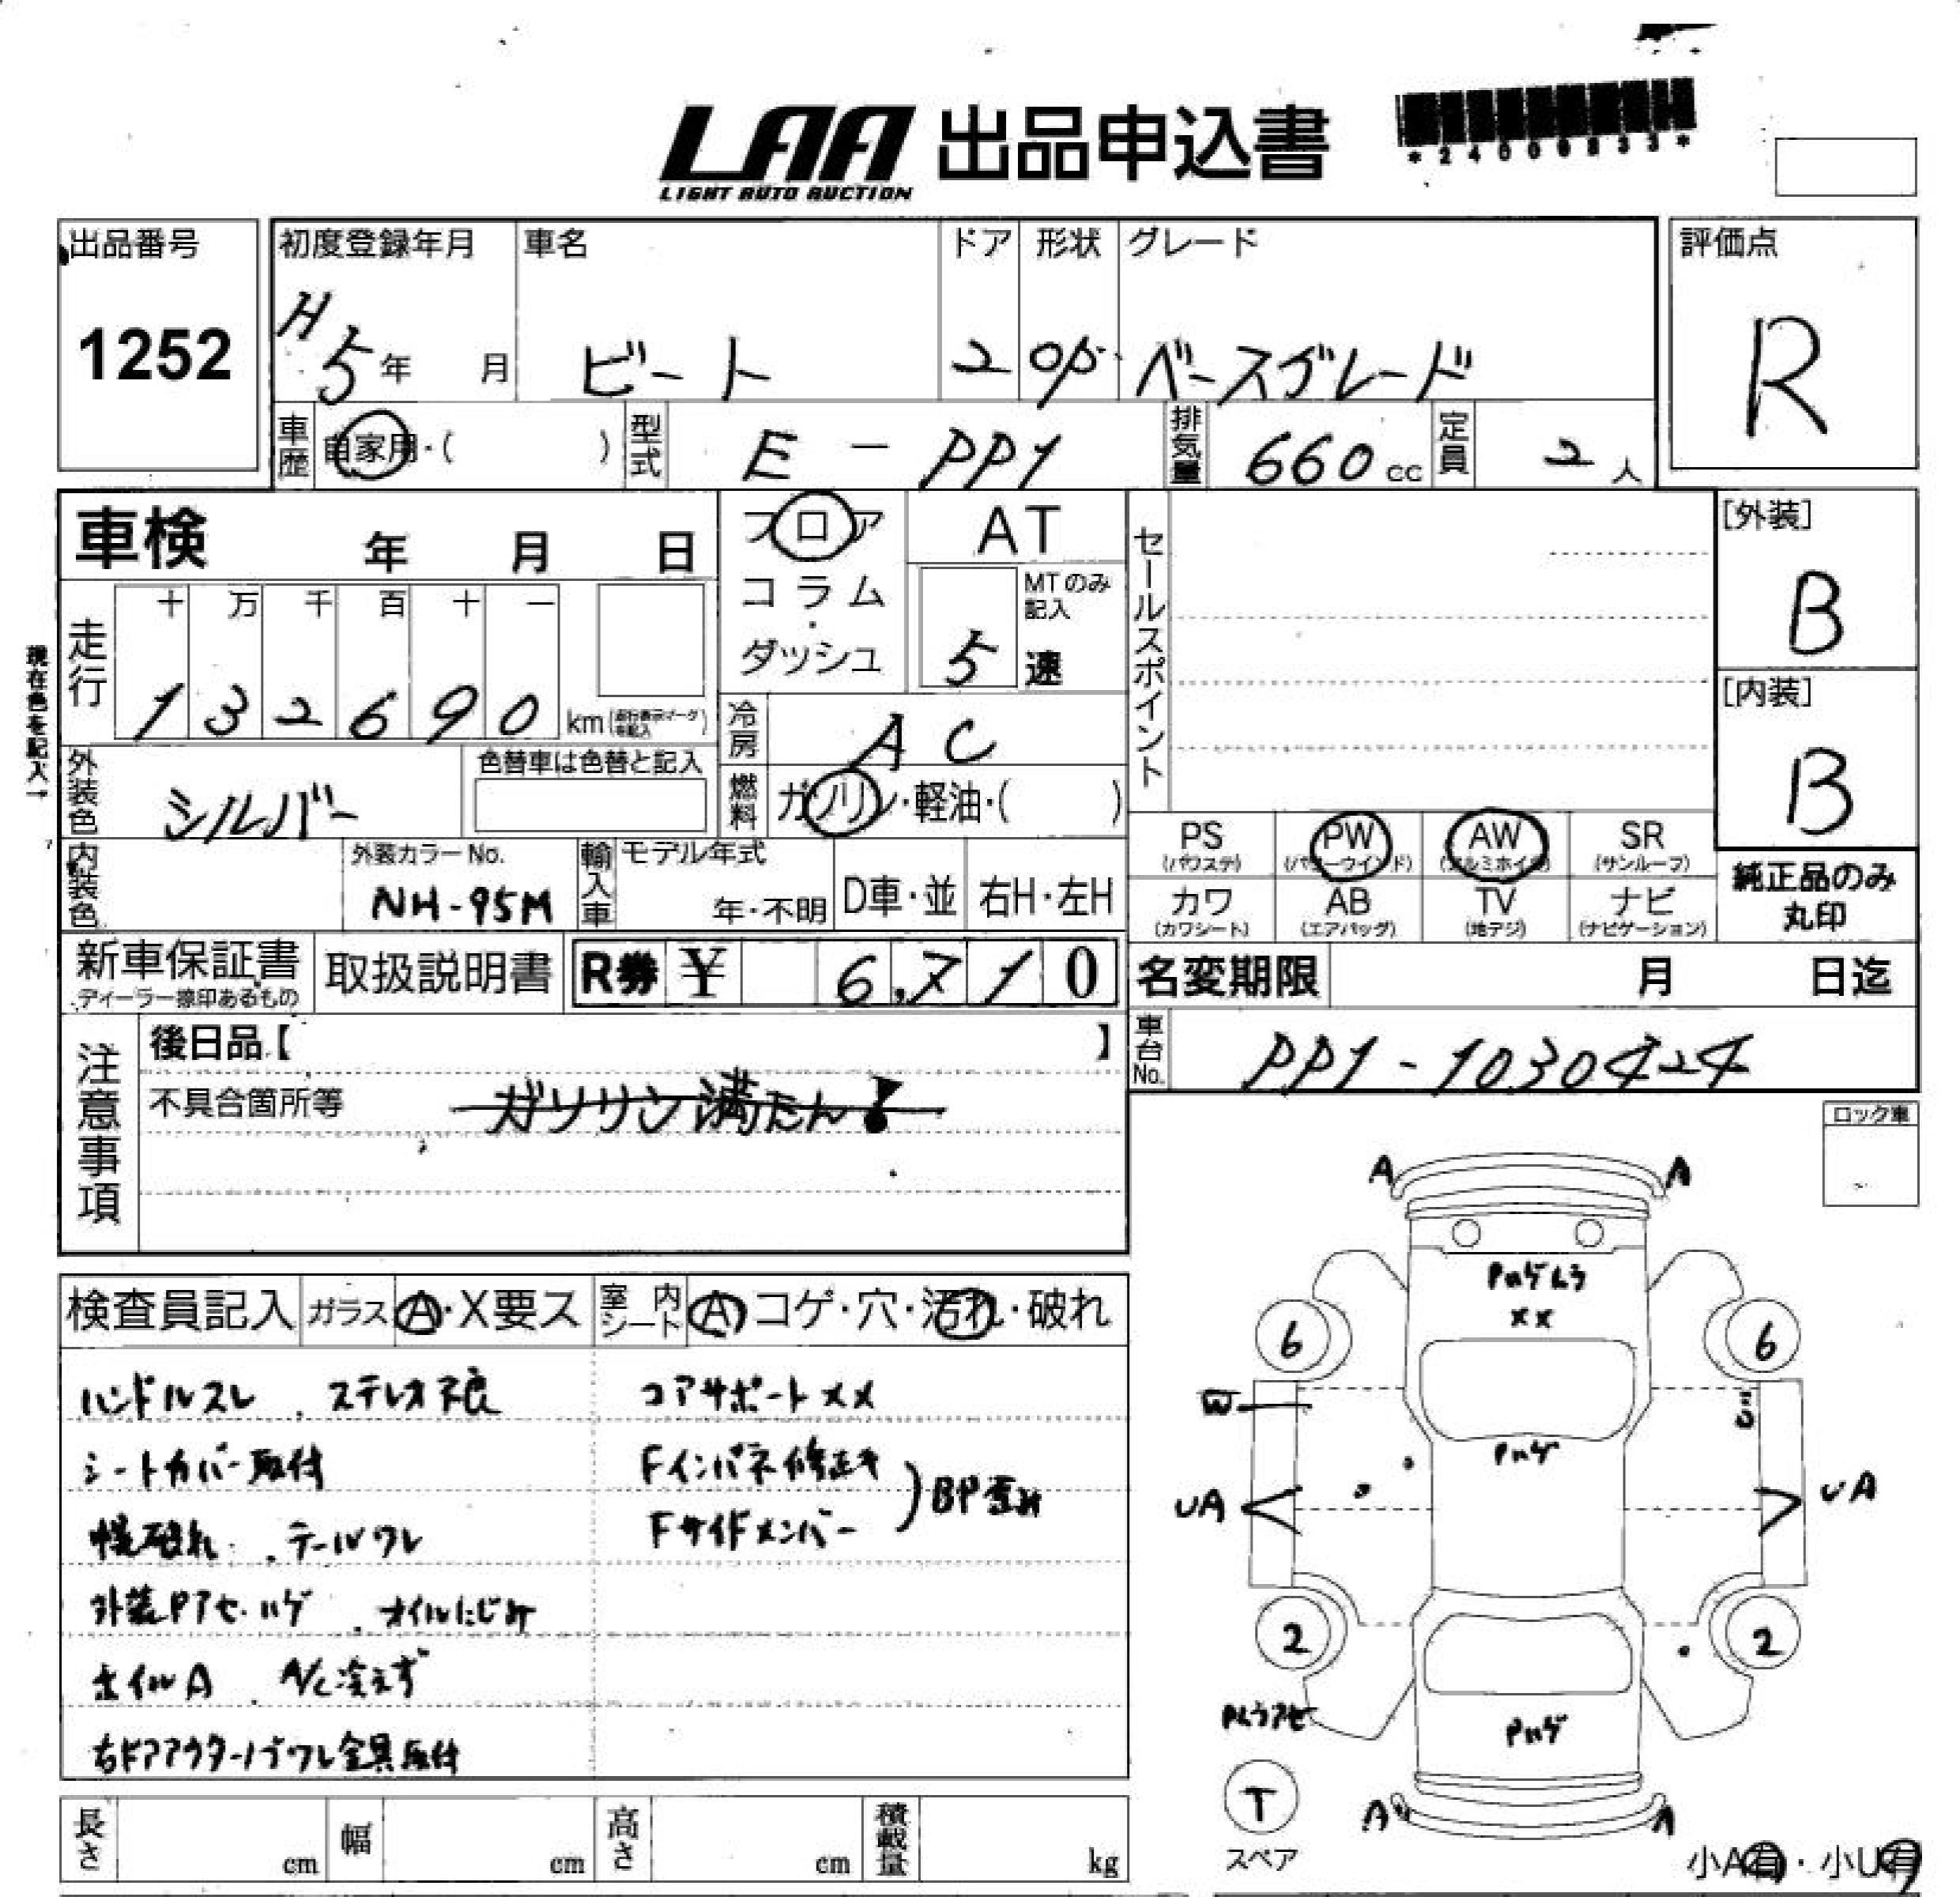 LAA 出品申込書
LIGHT AUTO AUCTION
出品番号
1252
初度登録年月
H
5年 月
車名
ビート
ドア
2
形状
OP
グレード
ベースグレード
評価点
R
車歴 自家用・( )
型式 E - PP1
排気量 660 cc
定員 2 人
車検 年 月 日
フロア
コラム
ダッシュ
AT
MTのみ記入
5 速
セールスポイント
[外装]
B
[内装]
B
現在色を記入→
走行
十 万 千 百 十 一
1 3 2 6 9 0 km
冷房 AC
燃料 ガソリン・軽油・( )
外装色 シルバー
色替車は色替と記入
内装色
外装カラーNo.
NH-95M
輸入車
モデル年式
年・不明
D車・並
右H・左H
PS (パワステ)
PW (パワーウインド)
AW (アルミホイル)
SR (サンルーフ)
カワ (カワシート)
AB (エアバッグ)
TV (地デジ)
ナビ (ナビゲーション)
純正品のみ
丸印
新車保証書
ディーラー捺印あるもの
取扱説明書
R券 ¥ 6,710
名変期限 月 日迄
車台No. PP1-1030424
注意事項
後日品【 】
不具合箇所等 ガソリン満たん!
ロック車
検査員記入 ガラス A・X要ス
室内シート A コゲ・穴・汚れ・破れ
ハンドルスレ . ステレオ不良
シートカバー取付
幌破れ . テールワレ
外装Pアセ・ハゲ . オイルにじみ
ホイルA . A/C冷えず
右ドアアウターノブワレ金具取付
コアサポートXX
Fインパネ修正キ
Fサイドメンバー
BP歪み
A A
Pハゲムラ
XX
6 6
W
Pハゲ
UA UA
2 2
Pムラアセ
Pハゲ
T
スペア
A A
小A有・小U有
長さ cm
幅 cm
高さ cm
積載量 kg